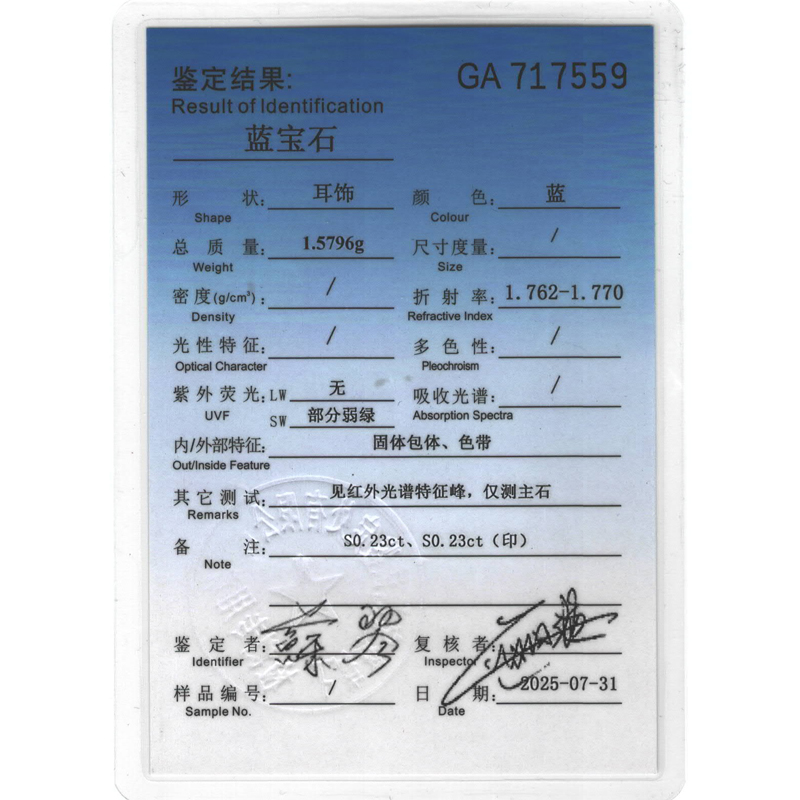 鉴定结果: GA 717559
Result of Identification
蓝宝石
形 状: 耳饰 颜 色: 蓝
Shape Colour
总 质 量: 1.5796g 尺寸度量: /
Weight Size
密 度(g/cm³): / 折 射 率: 1.762-1.770
Density Refractive Index
光性特征: / 多 色 性: /
Optical Character Pleochroism
紫外荧光: LW 无 吸收光谱: /
UVF SW 部分弱绿 Absorption Spectra
内/外部特征: 固体包体、色带
Out/Inside Feature
其它测试: 见红外光谱特征峰，仅测主石
Remarks
备 注: S0.23ct、S0.23ct（印）
Note
鉴 定 者: 复 核 者:
Identifier Inspector
样品编号: / 日 期: 2025-07-31
Sample No. Date